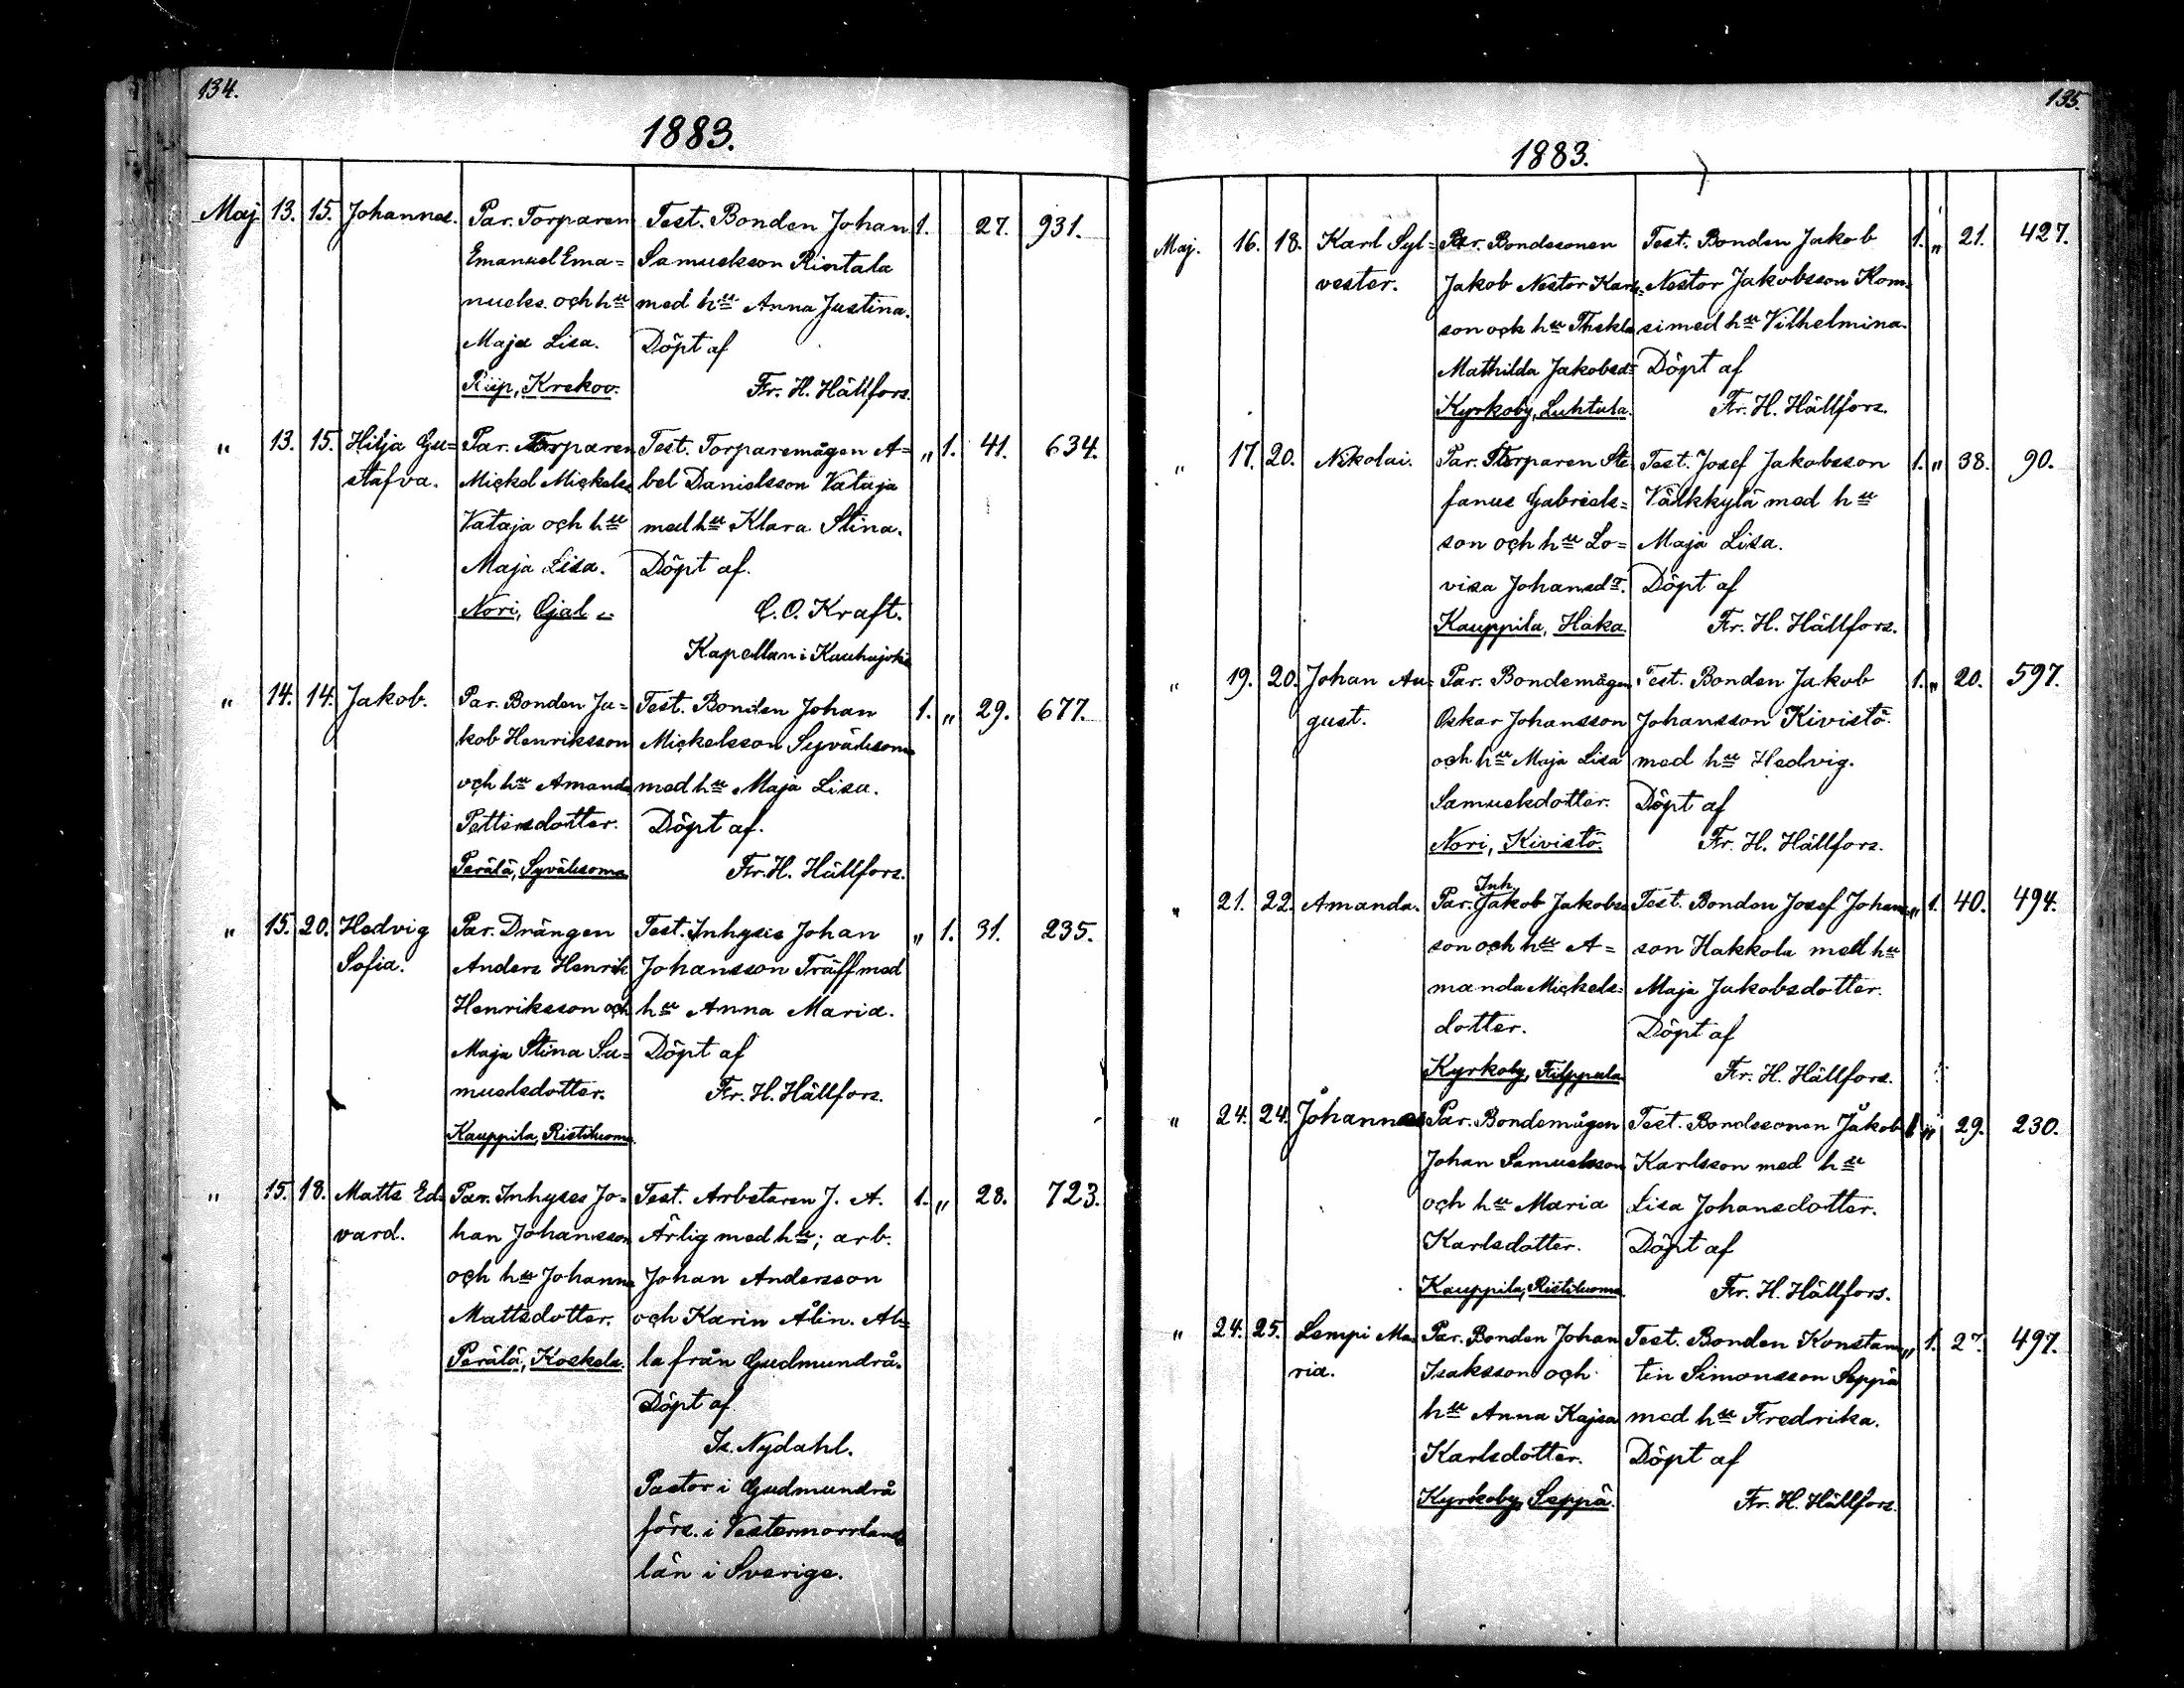 134.
1883.
Maj. 13. 15. Johannes. Par. Torparen Test. Bonden Johan 1. 27. 931.
Emanuel Ema= Samuelsson Rintala
nuels. och hu med hu Anna Justina.
Maja Lisa. Döpt af
Riip, Krekov. Fr. H. Hällfors.
" 13. 15. Hilja Gu= Par. Torparen Test. Torparemågen A= " 1. 41. 634.
stafva. Mickel Mickels bel Danielsson Vataja
Vataja och hu med hu Klara Stina.
Maja Lisa. Döpt af.
Nori, Ojal C. O. Kraft.
Kapellan i Kauhajoki
" 14. 14. Jakob. Par. Bonden Ja= Test. Bonden Johan 1. " 29. 677.
kob Henriksson Mickelsson Syväluoma
och hu Amanda med hu Maja Lisa.
Pettersdotter. Döpt af.
Perälä, Syväluoma Fr. H. Hällfors.
" 15. 20. Hedvig Par. Drängen Test. Inhyses Johan " 1. 31. 235.
Sofia. Anders Henrik Johansson Träff med
Henriksson och hu Anna Maria.
Maja Stina Sa= Döpt af
muelsdotter. Fr. H. Hällfors.
Kauppila, Ristiluoma.
" 15. 18. Matts Ed= Par. Inhyses Jo= Test. Arbetaren J. A. 1. " 28. 723.
vard. han Johansson Ärlig med hu; arb.
och hu Johanna Johan Andersson
Mattsdotter. och Karin Ålin. Al=
Perälä, Koskela. la från Gudmundrå.
Döpt af
Is. Nydahl.
Pastor i Gudmundrå
förs. i Vestermorrlands
län i Sverige.
135.
1883.
Maj. 16. 18. Karl Syl= Par. Bondesonen Test. Bonden Jakob 1. " 21. 427.
vester. Jakob Nestor Karls= Nestor Jakobsson Kom=
son och hu Thekla si med hu Vilhelmina.
Mathilda Jakobsd= Döpt af
Kyrkoby, Luhtala. Fr. H. Hällfors.
" 17. 20. Nikolai. Par. Torparen Ste Test. Josef Jakobsson 1. " 38. 90.
fanus Gabriels= Välkkylä med hu
son och hu Lo= Maja Lisa.
visa Johansdr. Döpt af
Kauppila, Haka. Fr. H. Hällfors.
" 19. 20. Johan Au= Par. Bondemågen Test. Bonden Jakob 1. " 20. 597.
gust. Oskar Johansson Johansson Kivistö
och hu Maja Lisa med hu Hedvig.
Samuelsdotter. Döpt af
Nori, Kivistö. Fr. H. Hällfors.
" 21. 22. Amanda. Par. Inh. Jakob Jakobs Test. Bonden Josef Johans " 1. 40. 494.
son och hu A= son Hakkola med hu
manda Mickels= Maja Jakobsdotter.
dotter. Döpt af
Kyrkoby, Filppula Fr. H. Hällfors.
" 24. 24. Johannes Par. Bondemågen Test. Bondesonen Jakob 1 " 29. 230.
Johan Samuelsson Karlsson med hu
och hu Maria Lisa Johansdotter.
Karlsdotter. Döpt af
Kauppila, Ristiluoma Fr. H. Hällfors.
" 24. 25. Lempi Ma Par. Bonden Johan Test. Bonden Konstan " 1. 27. 497.
ria. Isaksson och tin Simonsson Seppä
hu Anna Kajsa med hu Fredrika.
Karlsdotter. Döpt af
Kyrkoby, Seppä. Fr. H. Hällfors.